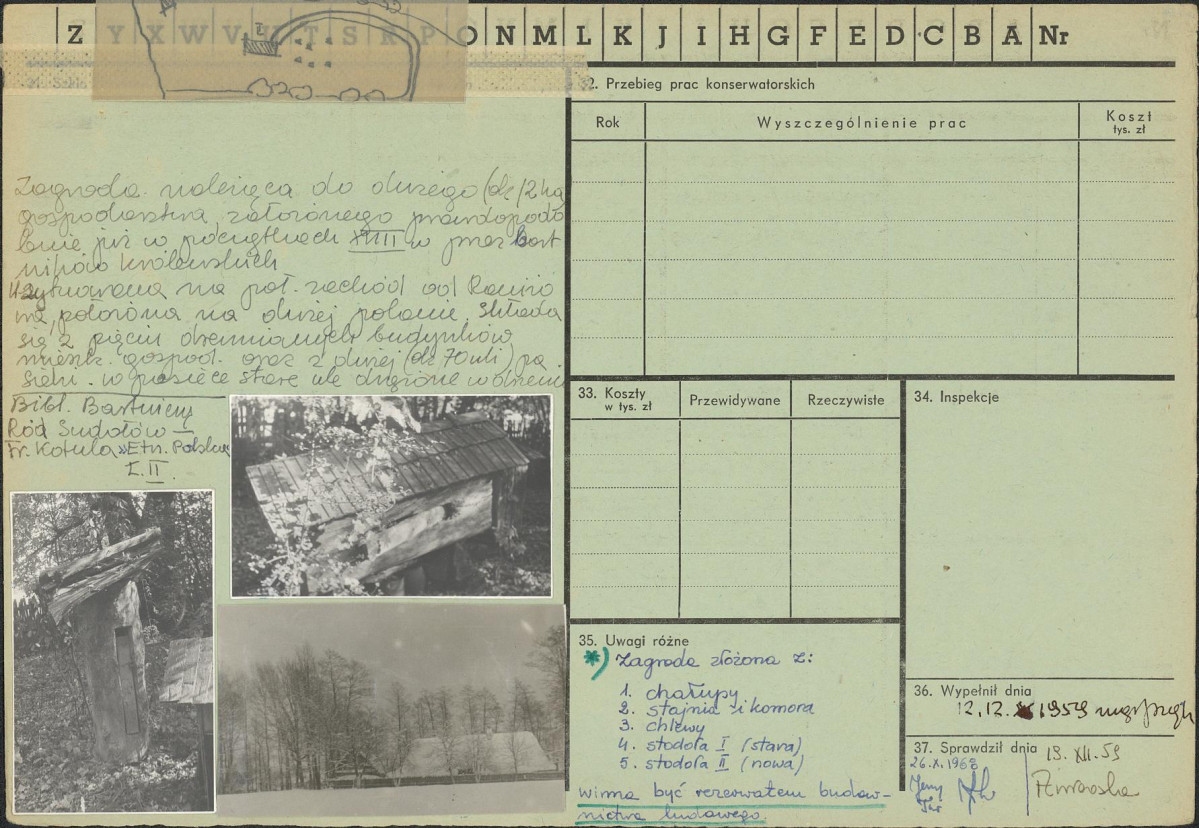 Z Y X W V U T S R P O N M L K J I H G F E D C B A Nr
2. Przebieg prac konserwatorskich
Rok
Wyszczególnienie prac
Koszt
tys. zł
Zagroda należąca do dużego (ok 12 ha)
gospodarstwa założonego prawdopodo
bnie już w początkach XVIII w przez bart
ników królewskich
Usytuowana na poł. zachód od
położona na dużej polanie. Składa
się z pięciu drewnianych budynków
mieszk. gospod. oraz z dużej (ok 70 uli) pa
sieki. w pasiece stare ule drążone w drzewie
Bibl. Bartnicy
Ród Sudołów —
Fr. Kotula „Etn. Polska"
t. II
33. Koszty
w tys. zł
Przewidywane
Rzeczywiste
34. Inspekcje
35. Uwagi różne
*) Zagroda złożona z:
1. chałupy
2. stajnia i komora
3. chlewy
4. stodoła I (stara)
5. stodoła II (nowa)
winna być rezerwatem budow-
nictwa ludowego.
36. Wypełnił dnia
12.12.1959
37. Sprawdził dnia
13. XII. 59
26.X.1968